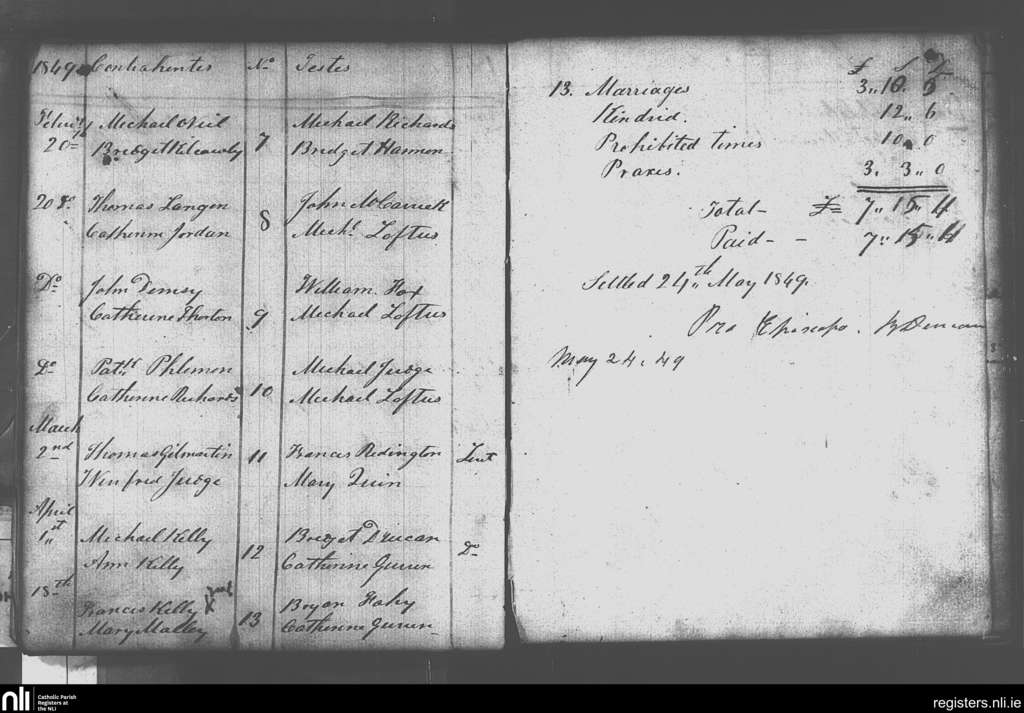 1849 Contrahentes No Testes
Februy Michael Neil Michael Richards
20th Bridget 7 Bridget Hannon
20 Do Thomas Langan John McCarrick
Catherine Jordan 8 Michl Loftus
Do John Demsy William Fox
Catherine Thorton 9 Michael Loftus
Do Patk Phlemon Michael Judge
Catherine Richards 10 Michael Loftus
March
2nd Thomas Gilmartin 11 Francis Redington Lent
Winfred Judge Mary Quin
April
1st Michael Kelly Bridget Duncan
Ann Kelly 12 Catherine Do
18th
Francis Kelly Bryan Fahy
Mary Malley 13 Catherine
£ S
13. Marriages 3,, 10.
Kindrid. 12,, 6
Prohibited times 10,, 0
Praxes. 3, 3,, 0
Total- £= 7,, 15,, 4
Paid- - 7,, 15,, 4
Settled 24th May 1849.
Pro Episcopo. Duncan
May 24, 49
nli Catholic Parish
Registers at
the NLI
registers.nli.ie